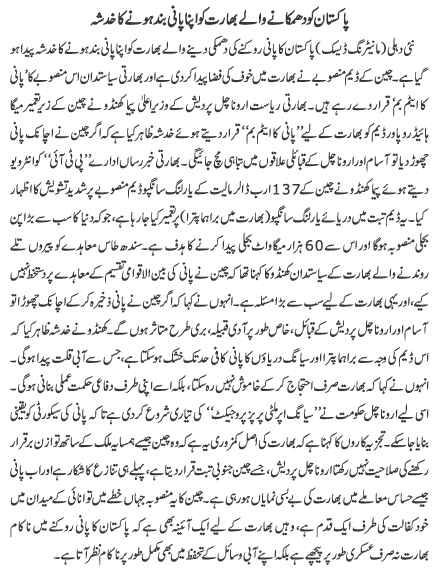 پاکستان کو دھمکانے والے بھارت کو اپنا پانی بند ہونے کا خدشہ
نئی دہلی (مانیٹرنگ ڈیسک) پاکستان کا پانی روکنے کی دھمکی دینے والے بھارت کو اپنا پانی بند ہونے کا خدشہ پیدا ہو
گیا ہے۔ چین کے ڈیم منصوبے نے بھارت میں خوف کی فضا پیدا کر دی ہے اور بھارتی سیاستدان اس منصوبے کا ’پانی
کا ایٹم بم‘ قرار دے رہے ہیں۔ بھارتی ریاست اروناچل پردیش کے وزیراعلیٰ پیما کھنڈو نے چین کے زیر تعمیر میگا
ہائیڈرو پاور ڈیم کو بھارت کے لیے ’’پانی کا ایٹم بم‘‘ قرار دیتے ہوئے خدشہ ظاہر کیا ہے کہ اگر چین نے اچانک پانی
چھوڑ دیا تو آسام اور اروناچل کے قبائلی علاقوں میں تباہی مچ جائیگی۔ بھارتی خبر رساں ادارے ’’پی ٹی آئی‘‘ کو انٹرویو
دیتے ہوئے پیما کھنڈو نے چین کے 137 ارب ڈالر مالیت کے یارلنگ سانگپو ڈیم منصوبے پر شدید تشویش کا اظہار
کیا۔ یہ ڈیم تبت میں دریائے یارلنگ سانگپو (بھارت میں براہما پترا) پر تعمیر کیا جا رہا ہے، جو کہ دنیا کا سب سے بڑا پن
بجلی منصوبہ ہوگا اور اس سے 60 ہزار میگا واٹ بجلی پیدا کرنے کا ہدف ہے۔ سندھ طاس معاہدے کو پیروں تلے
روندنے والے بھارت کے سیاستدان کھنڈو کا کہنا تھا کہ چین نے پانی کی بین الاقوامی تقسیم کے معاہدے پر دستخط نہیں
کیے، اور یہی بھارت کے لیے سب سے بڑا مسئلہ ہے۔ انہوں نے کہا کہ اگر چین نے پانی ذخیرہ کر کے اچانک چھوڑا تو
آسام اور اروناچل پردیش کے قبائل، خاص طور پر آدی قبیلہ، بری طرح متاثر ہوں گے۔ کھنڈو نے خدشہ ظاہر کیا کہ
اس ڈیم کی وجہ سے براہما پترا اور سیانگ دریاؤں کا پانی کافی حد تک خشک ہو سکتا ہے، جس سے آبی قلت پیدا ہوگی۔
انہوں نے کہا کہ بھارت صرف احتجاج کر کے خاموش نہیں رہ سکتا، بلکہ اسے اپنی طرف دفاعی حکمت عملی بنانی ہوگی۔
اسی لیے اروناچل حکومت نے ’’سیانگ اپر ملٹی پرپز پروجیکٹ‘‘ کی تیاری شروع کر دی ہے تا کہ پانی کی سکیورٹی کو یقینی
بنایا جا سکے۔ تجزیہ کاروں کا کہنا ہے کہ بھارت کی اصل کمزوری یہ ہے کہ وہ چین جیسے ہمسایہ ملک کے ساتھ توازن برقرار
رکھنے کی صلاحیت نہیں رکھتا اروناچل پردیش، جسے چین جنوبی تبت قرار دیتا ہے، پہلے ہی تنازع کا شکار ہے اور اب پانی
جیسے حساس معاملے میں بھارت کی بے بسی نمایاں ہو رہی ہے۔ چین کا یہ منصوبہ جہاں خطے میں توانائی کے میدان میں
خود کفالت کی طرف ایک قدم ہے، وہیں بھارت کے لیے ایک آئینہ بھی ہے کہ پاکستان کا پانی روکنے میں ناکام
بھارت نہ صرف عسکری طور پر پیچھے ہے بلکہ اپنے آبی وسائل کے تحفظ میں بھی مکمل طور پر ناکام نظر آتا ہے۔